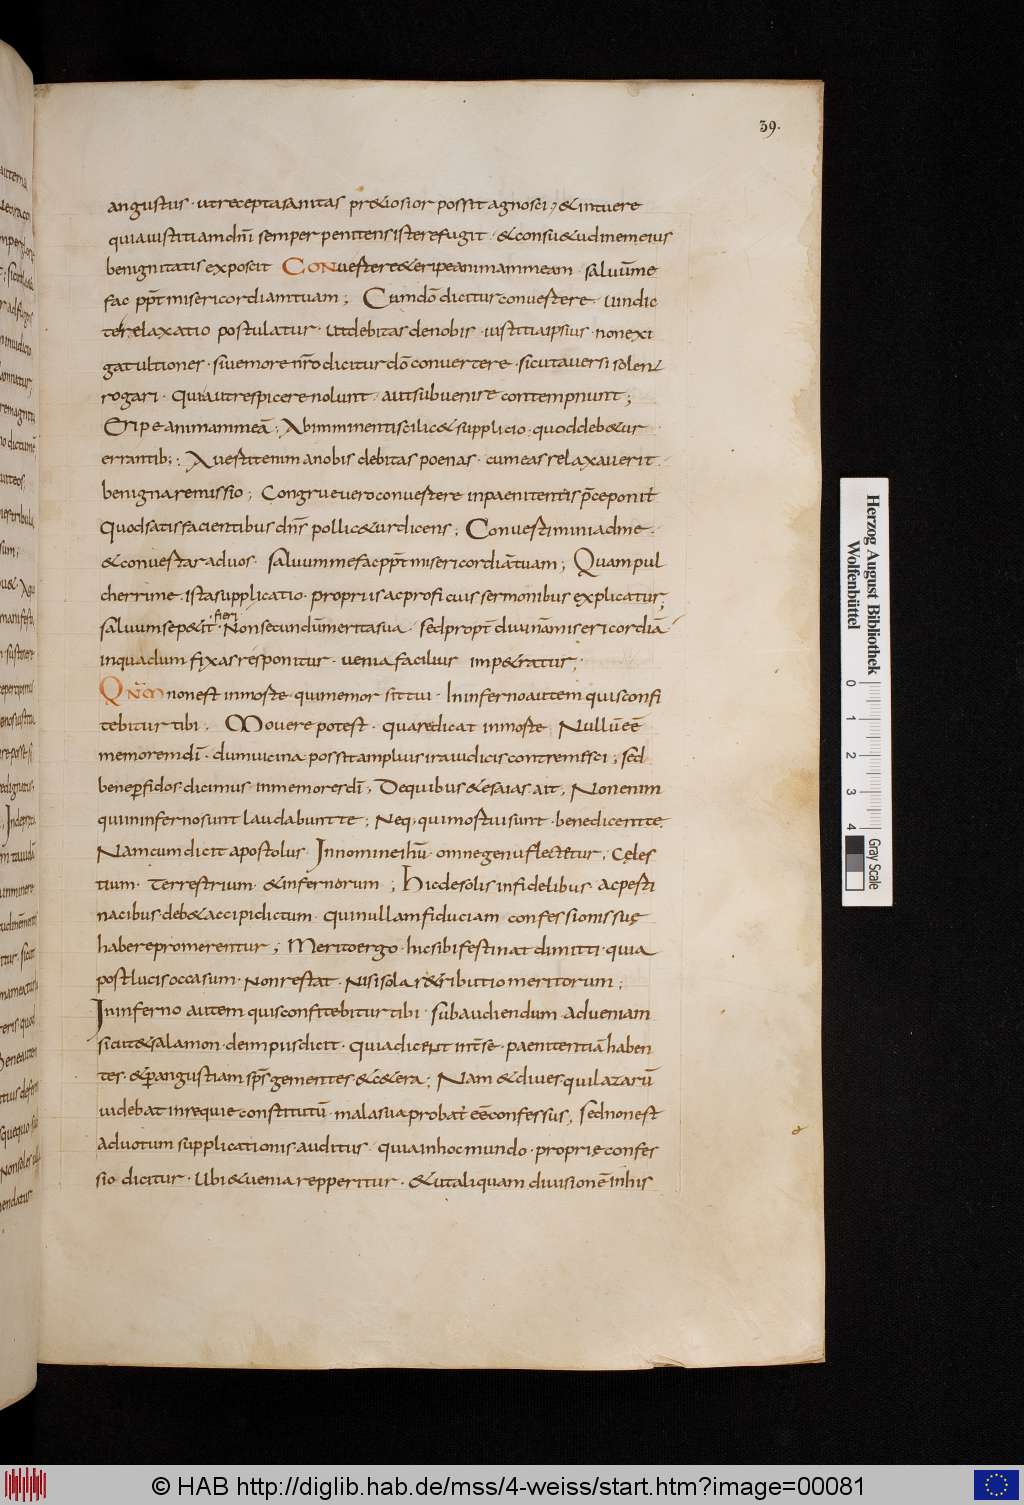 39.
angustus · ut recepta sanitas pr&iosior possit agnosci; & intuere
quia iustitiam dnī semper penitens iste refugit · & consu&udinem eius
benignitatis exposcit CONuertere & eripe animam meam · saluū me
fac ppt misericordiam tuam; Cum dō dicitur conuertere · uindic
te relaxatio postulatur · ut debitas de nobis · iustitia ipsius · non exi
gat ultiones · siue more nrō dicitur dō conuertere · sicut auersi solent
rogari · Qui aut respicere nolunt · aut subuenire contempnunt;
Eripe animam meā; Ab imminenti scilic& supplicio · quod deb&ur
errantib;; Auertit enim a nobis debitas poenas · cum eas relaxauerit
benigna remissio; Congrue uero conuertere in paenitentis p̄ce ponit
Quod satisfacientibus dn̄s pollic&ur dicens; Conuertimini ad me ·
& conuertar ad uos · saluum me fac ppt misericordiā tuam; Quam pul
cherrime · ista supplicatio · propriis ac proficuis sermonibus explicatur;
saluum se p&it · fieri · Non secundū merita sua · sed propt diuinā misericordiā
in qua dum fixa spes ponitur · uenia facilius imp&ratur;
QNM̄ non est in morte · qui memor sit tui · In inferno autem quis confi
tebitur tibi · Mouere potest · quare dicat in morte Nullū eē
memorem dī · dum uicina possit amplius ira iudicis contremisci; sed
bene perfidos dicimus inmemores dī; De quibus & esaias ait; Non enim
qui in inferno sunt laudabunt te; Neq; qui mortui sunt · benedicent te.
Nam cum dicit apostolus · In nomine ihū · omne genu flectetur, Cęles
tium · Terrestrium · & infernorum; Hic de solis infidelibus ac perti
nacibus deb& accipi dictum · qui nullam fiduciam confessionis suę
habere promerentur; Merito ergo · hic sibi festinat dimitti · quia
post lucis occasum · Non restat · Nisi sola r&ributio meritorum;
In inferno autem quis confitebitur tibi · subaudiendum ad ueniam
sicut & salamon · de impiis dicit · Quia dicent int se · paenitentiā haben
tes · & p angustiam sp̄s gementes · & c&era; Nam & diues · qui lazarū
uidebat in requie constitutū · mala sua probat eē confessus, sed non est
ad uotum supplicationis auditus · quia in hoc mundo · proprie confes
sio dicitur · Ubi & uenia repperitur · & ut aliquam diuisionē in his
Herzog August Bibliothek
Wolfenbüttel
0 1 2 3 4
Gray Scale
© HAB http://diglib.hab.de/mss/4-weiss/start.htm?image=00081